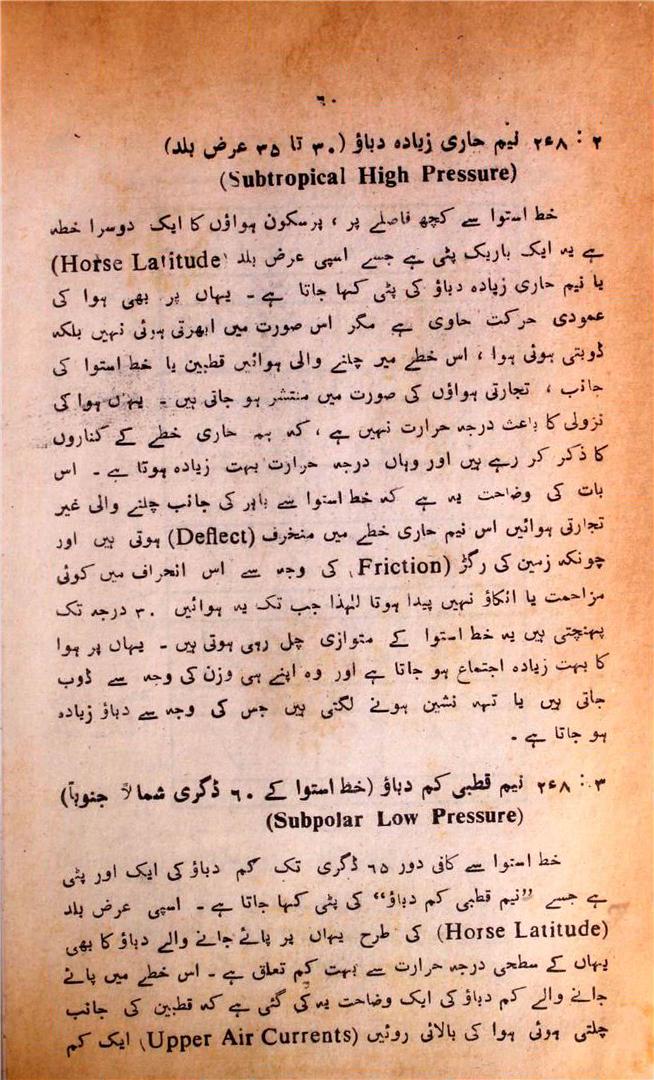 ۶۰
۲ : ۲ء۸ نیم حاری زیادہ دباؤ (۳۰ تا ۳۵ عرض بلد)
(Subtropical High Pressure)
خط استوا سے کچھ فاصلے پر ، پرسکون ہواؤں کا ایک دوسرا خطہ
ہے یہ ایک باریک پٹی ہے جسے اسپی عرض بلد (Horse Latitude)
یا نیم حاری زیادہ دباؤ کی پٹی کہا جاتا ہے ۔ یہاں پر بھی ہوا کی
عمودی حرکت حاوی ہے مگر اس صورت میں ابھرتی ہوئی نہیں بلکہ
ڈوبتی ہوئی ہوا ، اس خطے میں چلنے والی ہوائیں قطبین یا خط استوا کی
جانب ، تجارتی ہواؤں کی صورت میں منتشر ہو جاتی ہیں ۔ یہاں ہوا کی
نزولی کا باعث درجہ حرارت نہیں ہے ، کہ ہم حاری خطے کے کناروں
کا ذکر کر رہے ہیں اور وہاں درجہ حرارت بہت زیادہ ہوتا ہے ۔ اس
بات کی وضاحت یہ ہے کہ خط استوا سے باہر کی جانب چلنے والی غیر
تجارتی ہوائیں اس نیم حاری خطے میں منخرف (Deflect) ہوتی ہیں اور
چونکہ زمین کی رگڑ (Friction) کی وجہ سے اس انحراف میں کوئی
مزاحمت یا اٹکاؤ نہیں پیدا ہوتا لہٰذا جب تک یہ ہوائیں ۳۰ درجہ تک
پہنچتی ہیں یہ خط استوا کے متوازی چل رہی ہوتی ہیں ۔ یہاں پر ہوا
کا بہت زیادہ اجتماع ہو جاتا ہے اور وہ اپنے ہی وزن کی وجہ سے ڈوب
جاتی ہیں یا تہہ نشین ہونے لگتی ہیں جس کی وجہ سے دباؤ زیادہ
ہو جاتا ہے ۔
۳ : ۲ء۸ نیم قطبی کم دباؤ (خط استوا کے ۶۰ ڈگری شمالاً جنوباً)
(Subpolar Low Pressure)
خط استوا سے کافی دور ۶۵ ڈگری تک کم دباؤ کی ایک اور پٹی
ہے جسے ”نیم قطبی کم دباؤ“ کی پٹی کہا جاتا ہے ۔ اسپی عرض بلد
(Horse Latitude) کی طرح یہاں پر پائے جانے والے دباؤ کا بھی
یہاں کے سطحی درجہ حرارت سے بہت کم تعلق ہے ۔ اس خطے میں پائے
جانے والے کم دباؤ کی ایک وضاحت یہ کی گئی ہے کہ قطبین کی جانب
چلتی ہوئی ہوا کی بالائی روئیں (Upper Air Currents) ایک کم